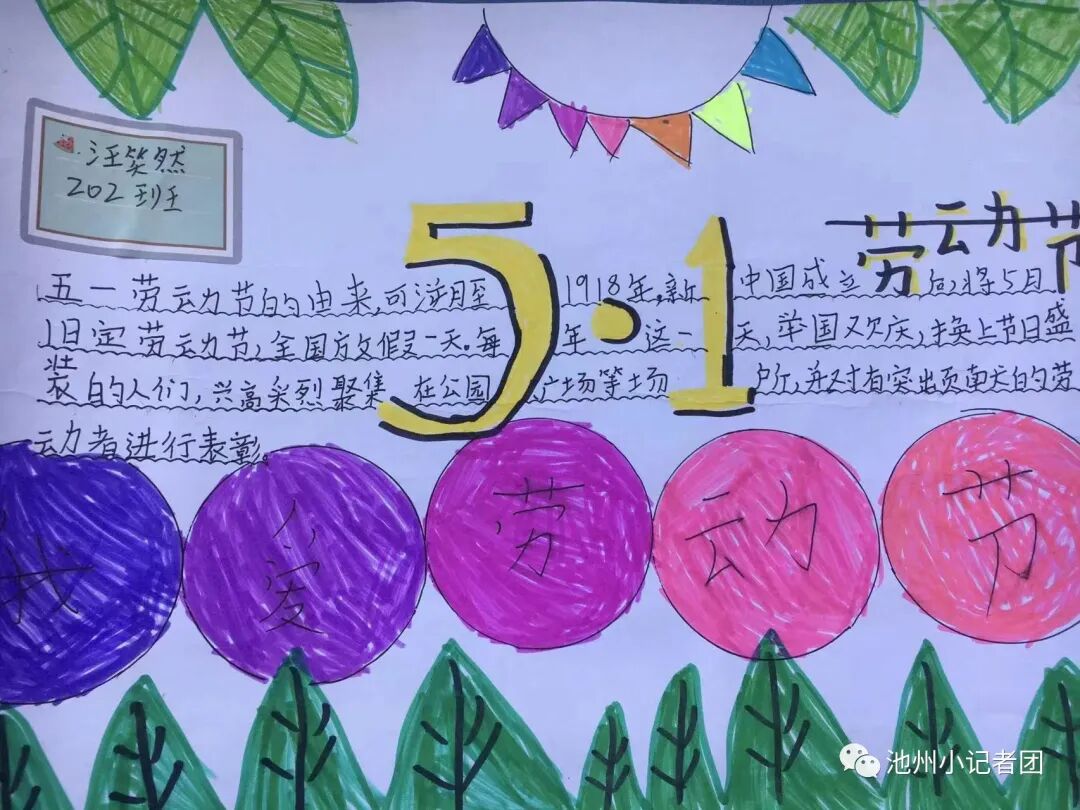 汪笑然
202班
5·1
劳动节
五一劳动节的由来,可溯自至1918年,新中国成立后,将5月
1日定劳动节,全国放假一天。每年这一天,举国又欢庆,换上节日盛
装的人们,兴高采烈聚集在公园广场等场所,并对有突出贡献的劳
动者进行表彰。
我爱劳动节
池州小记者团